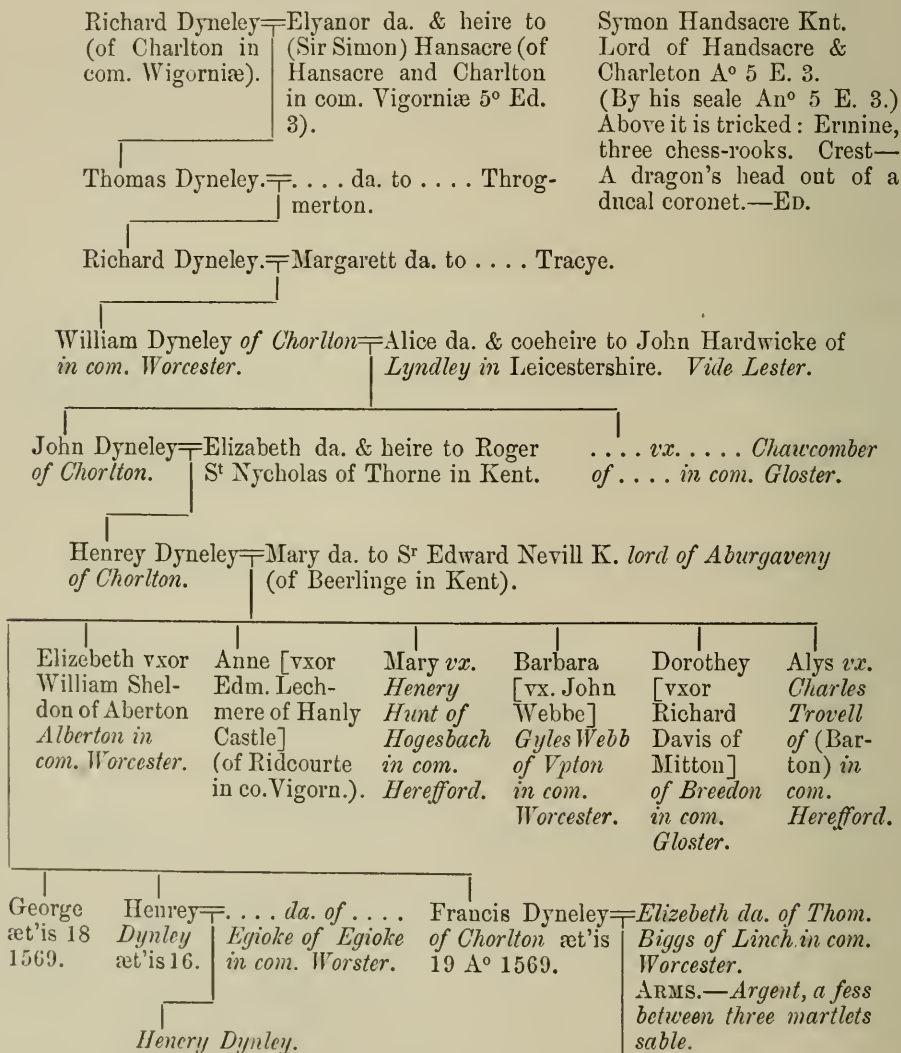 Richard Dyneley=Elyanor da. & heire to
(of Charlton in (Sir Simon) Hansacre (of
com. Wigorniæ). Hansacre and Charlton
in com. Vigorniæ 5º Ed.
3).
Symon Handsacre Knt.
Lord of Handsacre &
Charleton Aº 5 E. 3.
(By his seale Anº 5 E. 3.)
Above it is tricked: Ermine,
three chess-rooks. Crest—
A dragon's head out of a
ducal coronet.—ED.
Thomas Dyneley.=. . . . da. to . . . . Throg-
merton.
Richard Dyneley.=Margarett da. to . . . . Tracye.
William Dyneley of Chorlton=Alice da. & coeheire to John Hardwicke of
in com. Worcester. Lyndley in Leicestershire. Vide Lester.
John Dyneley=Elizabeth da. & heire to Roger
of Chorlton. St Nycholas of Thorne in Kent.
. . . . vx. . . . . Chawcomber
of . . . . in com. Gloster.
Henrey Dyneley=Mary da. to Sr Edward Nevill K. lord of Aburgaveny
of Chorlton. (of Beerlinge in Kent).
Elizebeth vxor
William Shel-
don of Aberton
Alberton in
com. Worcester.
Anne [vxor
Edm. Lech-
mere of Hanly
Castle]
(of Ridcourte
in co. Vigorn.).
Mary vx.
Henery
Hunt of
Hogesbach
in com.
Herefford.
Barbara
[vx. John
Webbe]
Gyles Webb
of Vpton
in com.
Worcester.
Dorothey
[vxor
Richard
Davis of
Mitton]
of Breedon
in com.
Gloster.
Alys vx.
Charles
Trovell
of (Bar-
ton) in
com.
Herefford.
George
æt'is 18
1569.
Henrey=. . . . da. of . . . .
Dynley Egioke of Egioke
æt'is 16. in com. Worster.
Francis Dyneley=Elizebeth da. of Thom.
of Chorlton æt'is Biggs of Linch in com.
19 Aº 1569. Worcester.
ARMS.—Argent, a fess
between three martlets
sable.
Henery Dynley.